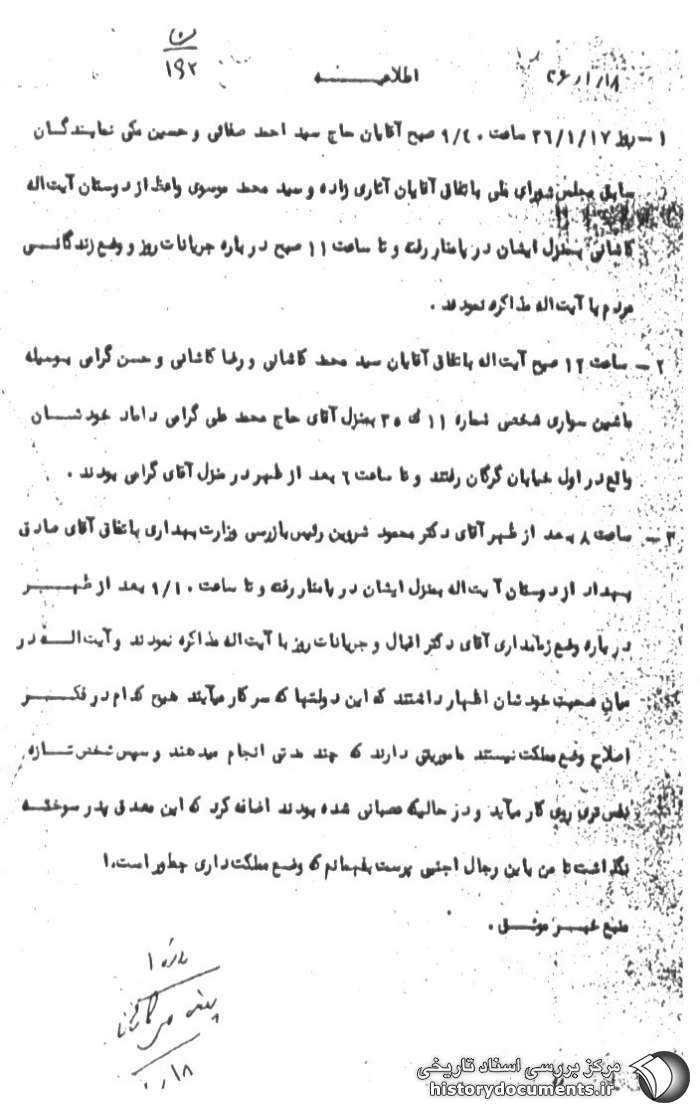 ن
۱۹۲
۳۶/۱/۱۸
اطلاعیـــه
۱ – روز ۳۶/۱/۱۷ ساعت ۹/۴۰ صبح آقایان حاج سید احمد صفائی و حسین مکی نمایندگان
سابق مجلس شورای ملی باتفاق آقایان آثاری زاده و سید محمد موسوی واعظ از دوستان آیت اله
کاشانی بمنزل ایشان در پامنار رفته و تا ساعت ۱۱ صبح درباره جریانات روز و وضع زندگانی
مردم با آیت اله مذاکره نمودند .
۲ – ساعت ۱۲ صبح آیت اله باتفاق آقایان سید محمد کاشانی و رضا کاشانی و حسن گرامی بوسیله
ماشین سواری شخصی شماره ۱۱ ک ۳۵ بمنزل آقای حاج محمد علی گرامی داماد خودشان
واقع در اول خیابان گرگان رفتند و تا ساعت ۶ بعد از ظهر در منزل آقای گرامی بودند .
۳ – ساعت ۸ بعد از ظهر آقای دکتر محمود شروین رئیس بازرسی وزارت بهداری باتفاق آقای صادق
بهداد از دوستان آیت اله بمنزل ایشان در پامنار رفته و تا ساعت ۹/۱۰ بعد از ظهر
درباره وضع زمامداری آقای دکتر اقبال و جریانات روز با آیت اله مذاکره نمودند و آیت الـه در
میان صحبت خودشان اظهار داشتند که این دولتها که سر کار میآیند هیچ کدام در فکر
اصلاح وضع مملکت نیستند ماموریتی دارند که چند مدتی انجام میدهند و سپس شخص تازه
نفس تری روی کار میآید و در حالیکه عصبانی شده بودند اضافه کرد که این مصدق پدر سوخته
نگذاشت تا من باین رجال اجنبی پرست بفهمانم که وضع مملکت داری چطور است.!
منبع خبر موثق .
۱/۱۸
مرکز بررسی اسناد تاریخی
historydocuments.ir